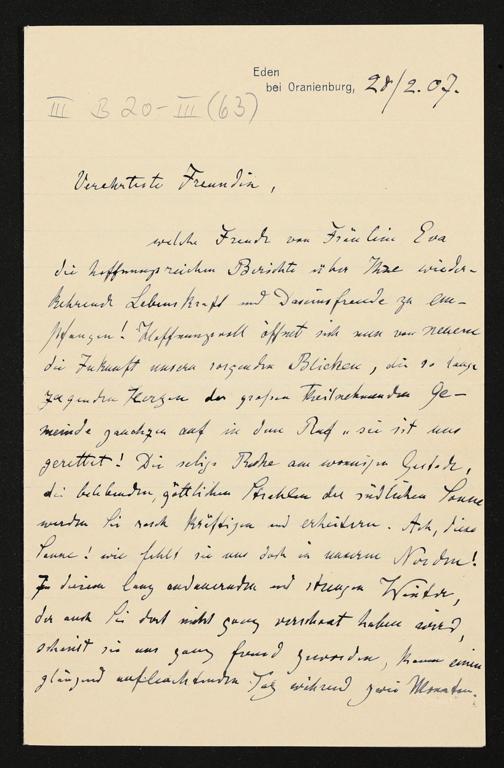 Eden
bei Oranienburg, 28/2. 07.
III B 20-III (63)
Verehrteste Freundin,
welche Freude von Fräulein Eva
die hoffnungsreichen Berichte über Ihre wieder-
kehrende Lebenskraft und Daseinsfreude zu em-
pfangen! Hoffnungsvoll öffnet sich nun von neuem
die Zukunft unsern sorgenden Blicken, die so lange
zagenden Herzen der großen theilnehmenden Ge-
meinde jauchzen auf in dem Ruf „sie ist uns
gerettet! Die selige Ruhe am wonnigen Gestade,
die belebenden, göttlichen Strahlen der südlichen Sonne
werden Sie rasch kräftigen und erheitern. Ach, diese
Sonne! wie fehlt sie uns doch in unserm Norden!
In diesem lang andauernden und strengen Winter,
der auch Sie dort nicht ganz verschont haben wird,
scheint sie uns ganz fremd geworden, kaum einen
glänzend aufleuchtenden Tag während zwei Monaten.